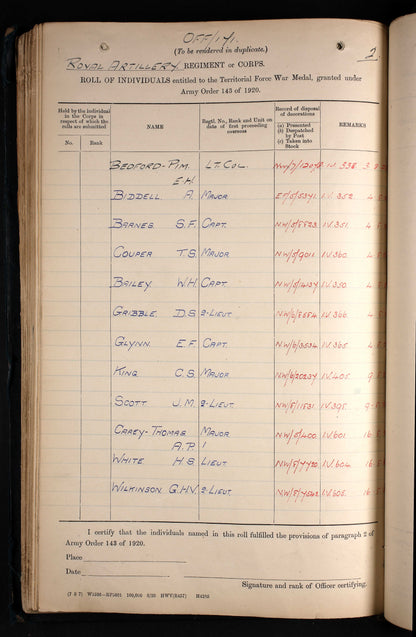 OFF/1/1.
(To be rendered in duplicate.)
2
ROYAL ARTILLERY REGIMENT or CORPS.
ROLL OF INDIVIDUALS entitled to the Territorial Force War Medal, granted under
Army Order 143 of 1920.
Held by the individual in the Corps in respect of which the rolls are submitted
No. Rank
NAME
Regtl. No., Rank and Unit on date of first proceeding overseas
Record of disposal of decorations
(a) Presented
(b) Despatched by Post
(c) Taken into Stock
REMARKS
BEDFORD-PIM. E.H. LT. COL. IV. 338. 3
BIDDELL A. MAJOR IV. 352. 4
BARNES S.F. CAPT. IV. 351. 4
COUPER T.S. MAJOR IV. 360. 4
BAILEY W.H. CAPT. IV. 350 4
GRIBBLE D.S. 2-LIEUT. IV. 366. 4
GLYNN. E.F. CAPT. NW/6/3534 IV. 365. 4
KING C.S. MAJOR NW/6/20237 IV. 405. 9
SCOTT J.M. 2-LIEUT. NW/5/11531 IV. 395. 9
CAREY-THOMAS A.P. MAJOR NW/5/400 IV. 601 16
WHITE H.S. LIEUT IV. 604 16
WILKINSON G.H.V. 2-LIEUT. 16
I certify that the individuals named in this roll fulfilled the provisions of paragraph 2 of
Army Order 143 of 1920.
Place
Date
Signature and rank of Officer certifying.